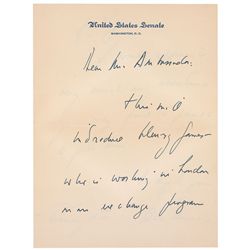 United States Senate
WASHINGTON, D.C.
Dear Mr. Ambassador:
this is to
introduce Henry James
who is working in London
on an exchange program